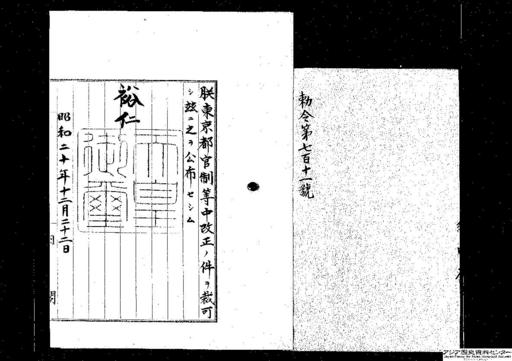 勅令第七百十一號
朕東京都官制等中改正ノ件ヲ裁可
シ玆ニ之ヲ公布セシム
裕仁
天皇御璽
昭和二十年十二月二十二日
アジア歴史資料センター